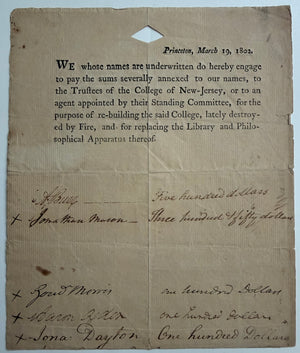 Princeton, March 19, 1802.
WE whose names are underwritten do hereby engage
to pay the sums severally annexed to our names, to
the Trustees of the College of New-Jersey, or to an
agent appointed by their Standing Committee, for the
purpose of re-building the said College, lately destroy-
ed by Fire, and for replacing the Library and Philo-
sophical Apparatus thereof.
Five hundred dollars
x Jonathan Mason — Three hundred & fifty dollars
x Morris one hundred Dollars
x Aaron one hundred Dollars
x Jona Dayton One hundred Dollars